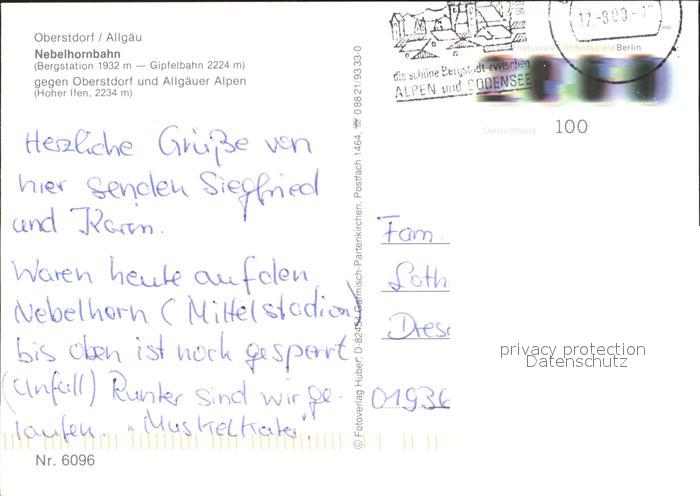 Oberstdorf / Allgäu
Nebelhornbahn
(Bergstation 1932 m — Gipfelbahn 2224 m)
gegen Oberstdorf und Allgäuer Alpen
(Hoher Ifen, 2234 m)
Herzliche Grüße von
hier senden Siegfried
und Karin.
Waren heute auf den
Nebelhorn (Mittelstadion)
bis oben ist noch gesperrt
(Unfall) Runter sind wir ge-
laufen. "Muskelkater"
Nr. 6096
© Fotoverlag Huber, D-82454 Garmisch-Partenkirchen, Postfach 1464, ☎ 0 88 21/93 33-0
die schöne Bergstadt zwischen
ALPEN und BODENSEE
Filmfestspiele Berlin
Deutschland 100
Fam.
Loth
Dres
01936
privacy protection
Datenschutz